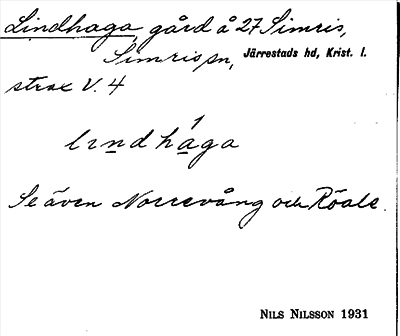 Lindhaga, gård å 27 Simris,
Simris sn, Järrestads hd, Krist. l.
strax V. 4
lindhàga
Se även Norrevång och Röale.
NILS NILSSON 1931